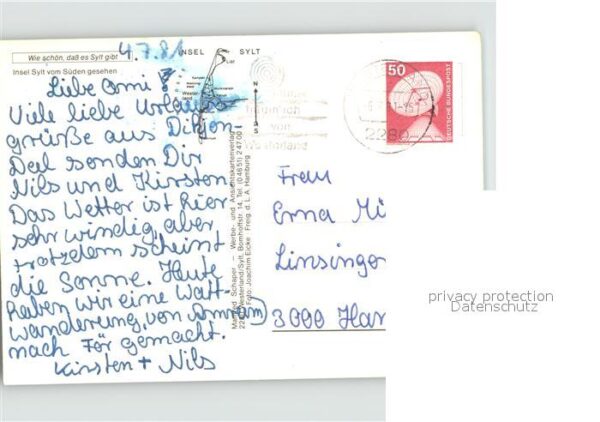 Wie schön, daß es Sylt gibt
4.7.81
INSEL SYLT
Insel Sylt vom Süden gesehen
Liebe Omi!
Viele liebe Urlaubs-
grüße aus
senden Dir
Nils und Kirsten.
Das Wetter ist hier
sehr windig, aber
trotzdem scheint
die Sonne. Heute
haben wir eine Watt-
wanderung (von Amrum)
nach För gemacht.
Kirsten + Nils
List
Westerland
N
S
Manfred Schaper – Werbe- und Ansichtskartenverlag
2280 Westerland/Sylt, Bomhoffstr. 14, Tel. (04651) 24700
Foto: Joachim Eicke Freig. d. L. A. Hamburg
50
DEUTSCHE BUNDESPOST
2280
von
Westerland
Frau
Erna Mi
Linsingen
3000 Han
privacy protection
Datenschutz